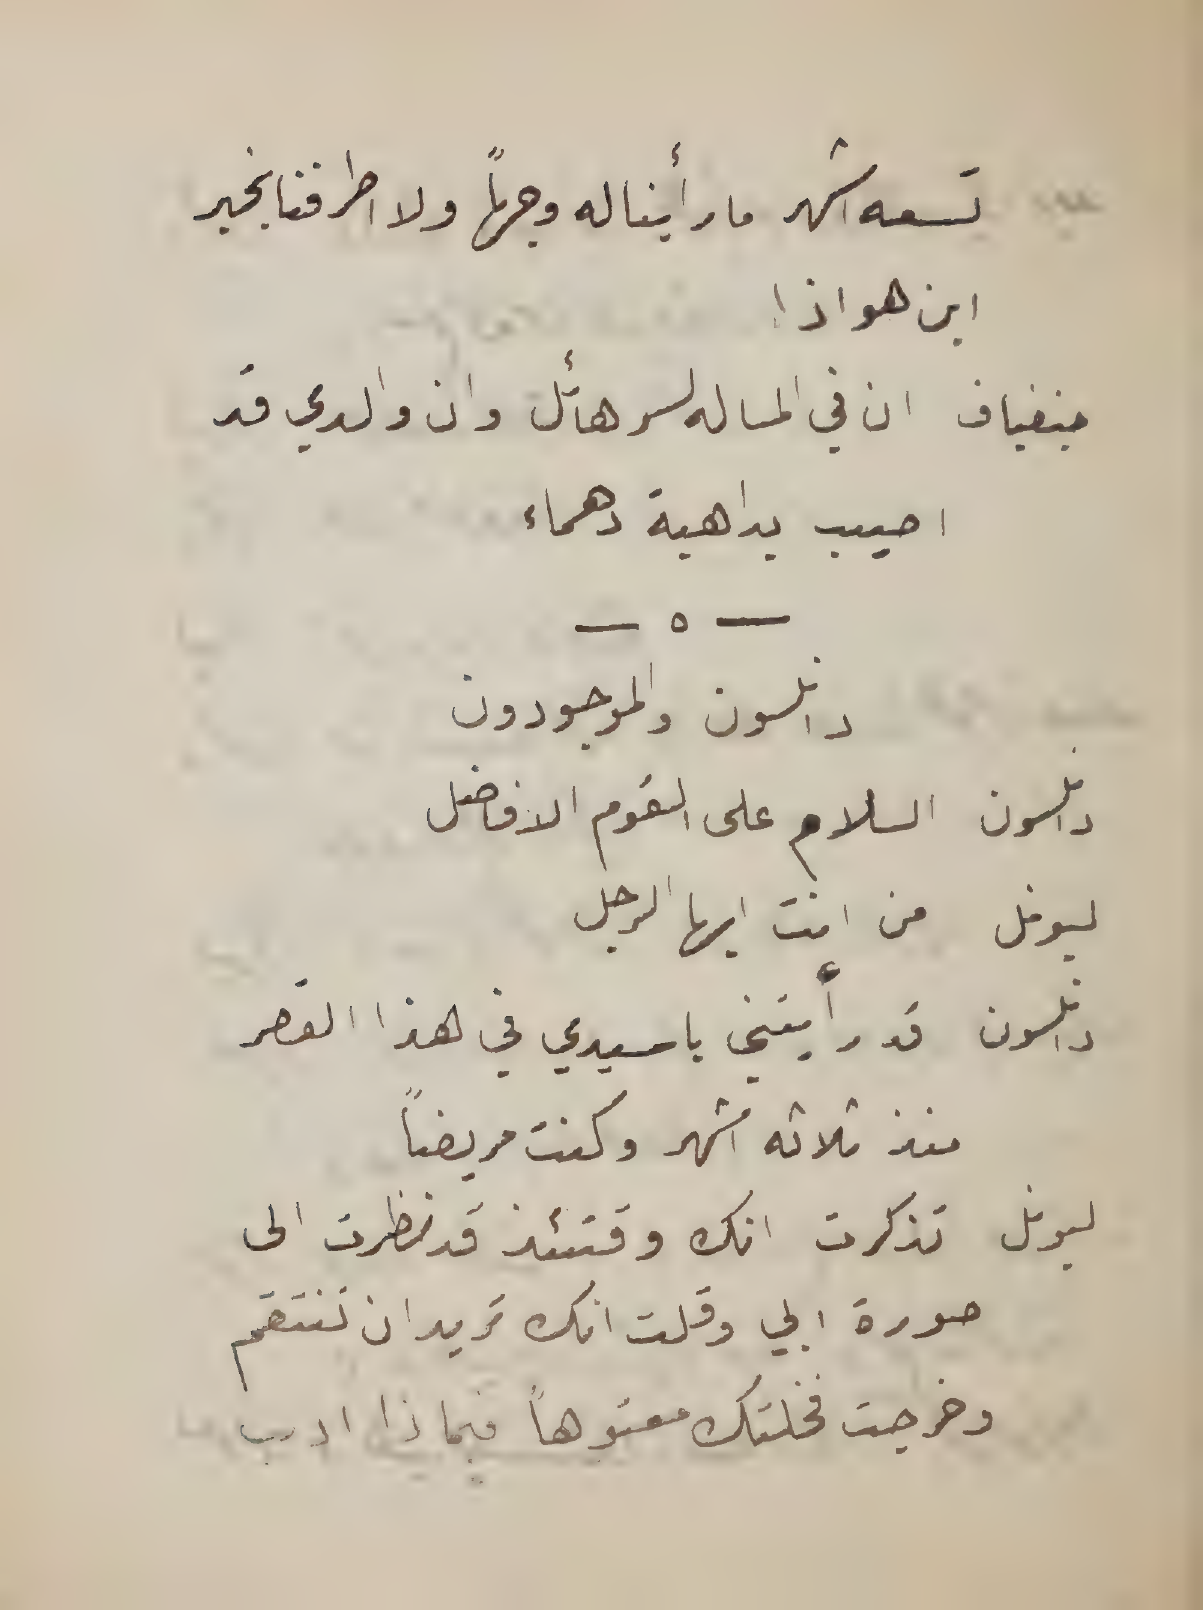 تسعه اشهر ما رأينا له وجهاً ولا اطرفنا بخبر
اين هو اذا
جنفياف ان في المساله لسر هائل وان والدي قد
اصيب بداهية دهماء
— ٥ —
دانلسون والموجودون
دانلسون السلام على القوم الافاضل
ليونل من انت ايها الرجل
دانلسون قد رأيتني يا سيدي في هذا القصر
منذ ثلاثه اشهر وكنت مريضاً
ليونل تذكرت انك وقتئذ قد نظرت الى
صورة ابي وقلت انك تريد ان تنتقم
وخرجت فخلتك معتوهاً فبماذا